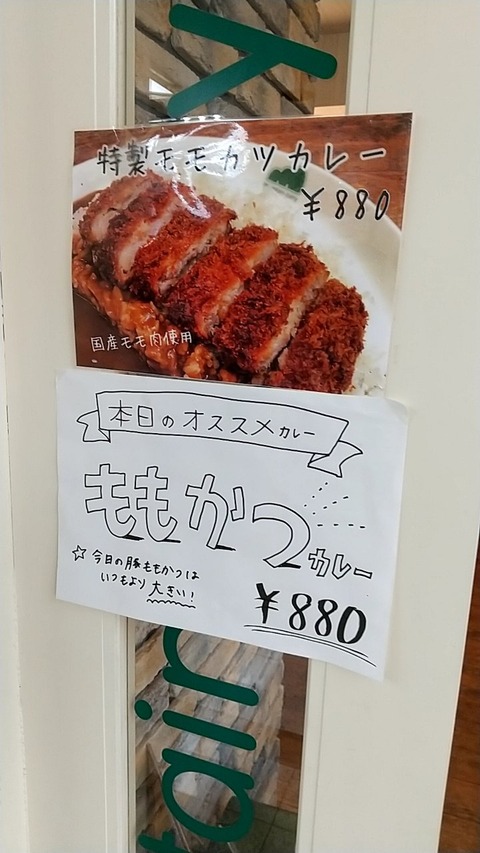 特製モモカツカレー
¥880
国産モモ肉使用
本日のオススメカレー
ももかつカレー
☆今日の豚ももかつは
いつもより大きい!
¥880
y
tair